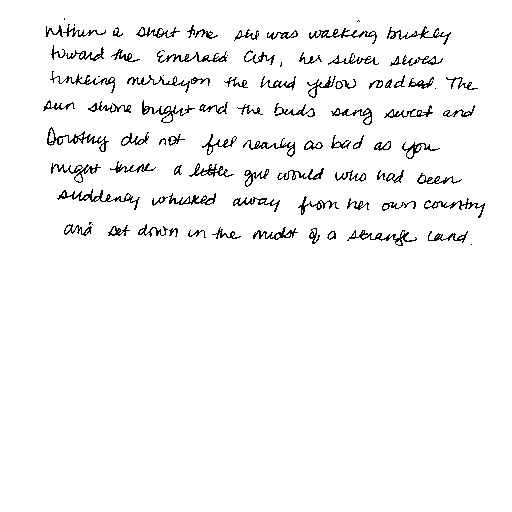 Within a short time she was walking briskly
toward the Emerald City, her silver shoes
tinkling merrily on the hard yellow roadbed. The
sun shone bright and the birds sang sweet and
Dorothy did not feel nearly as bad as you
might think a little girl would who had been
suddenly whisked away from her own country
and set down in the midst of a strange land.